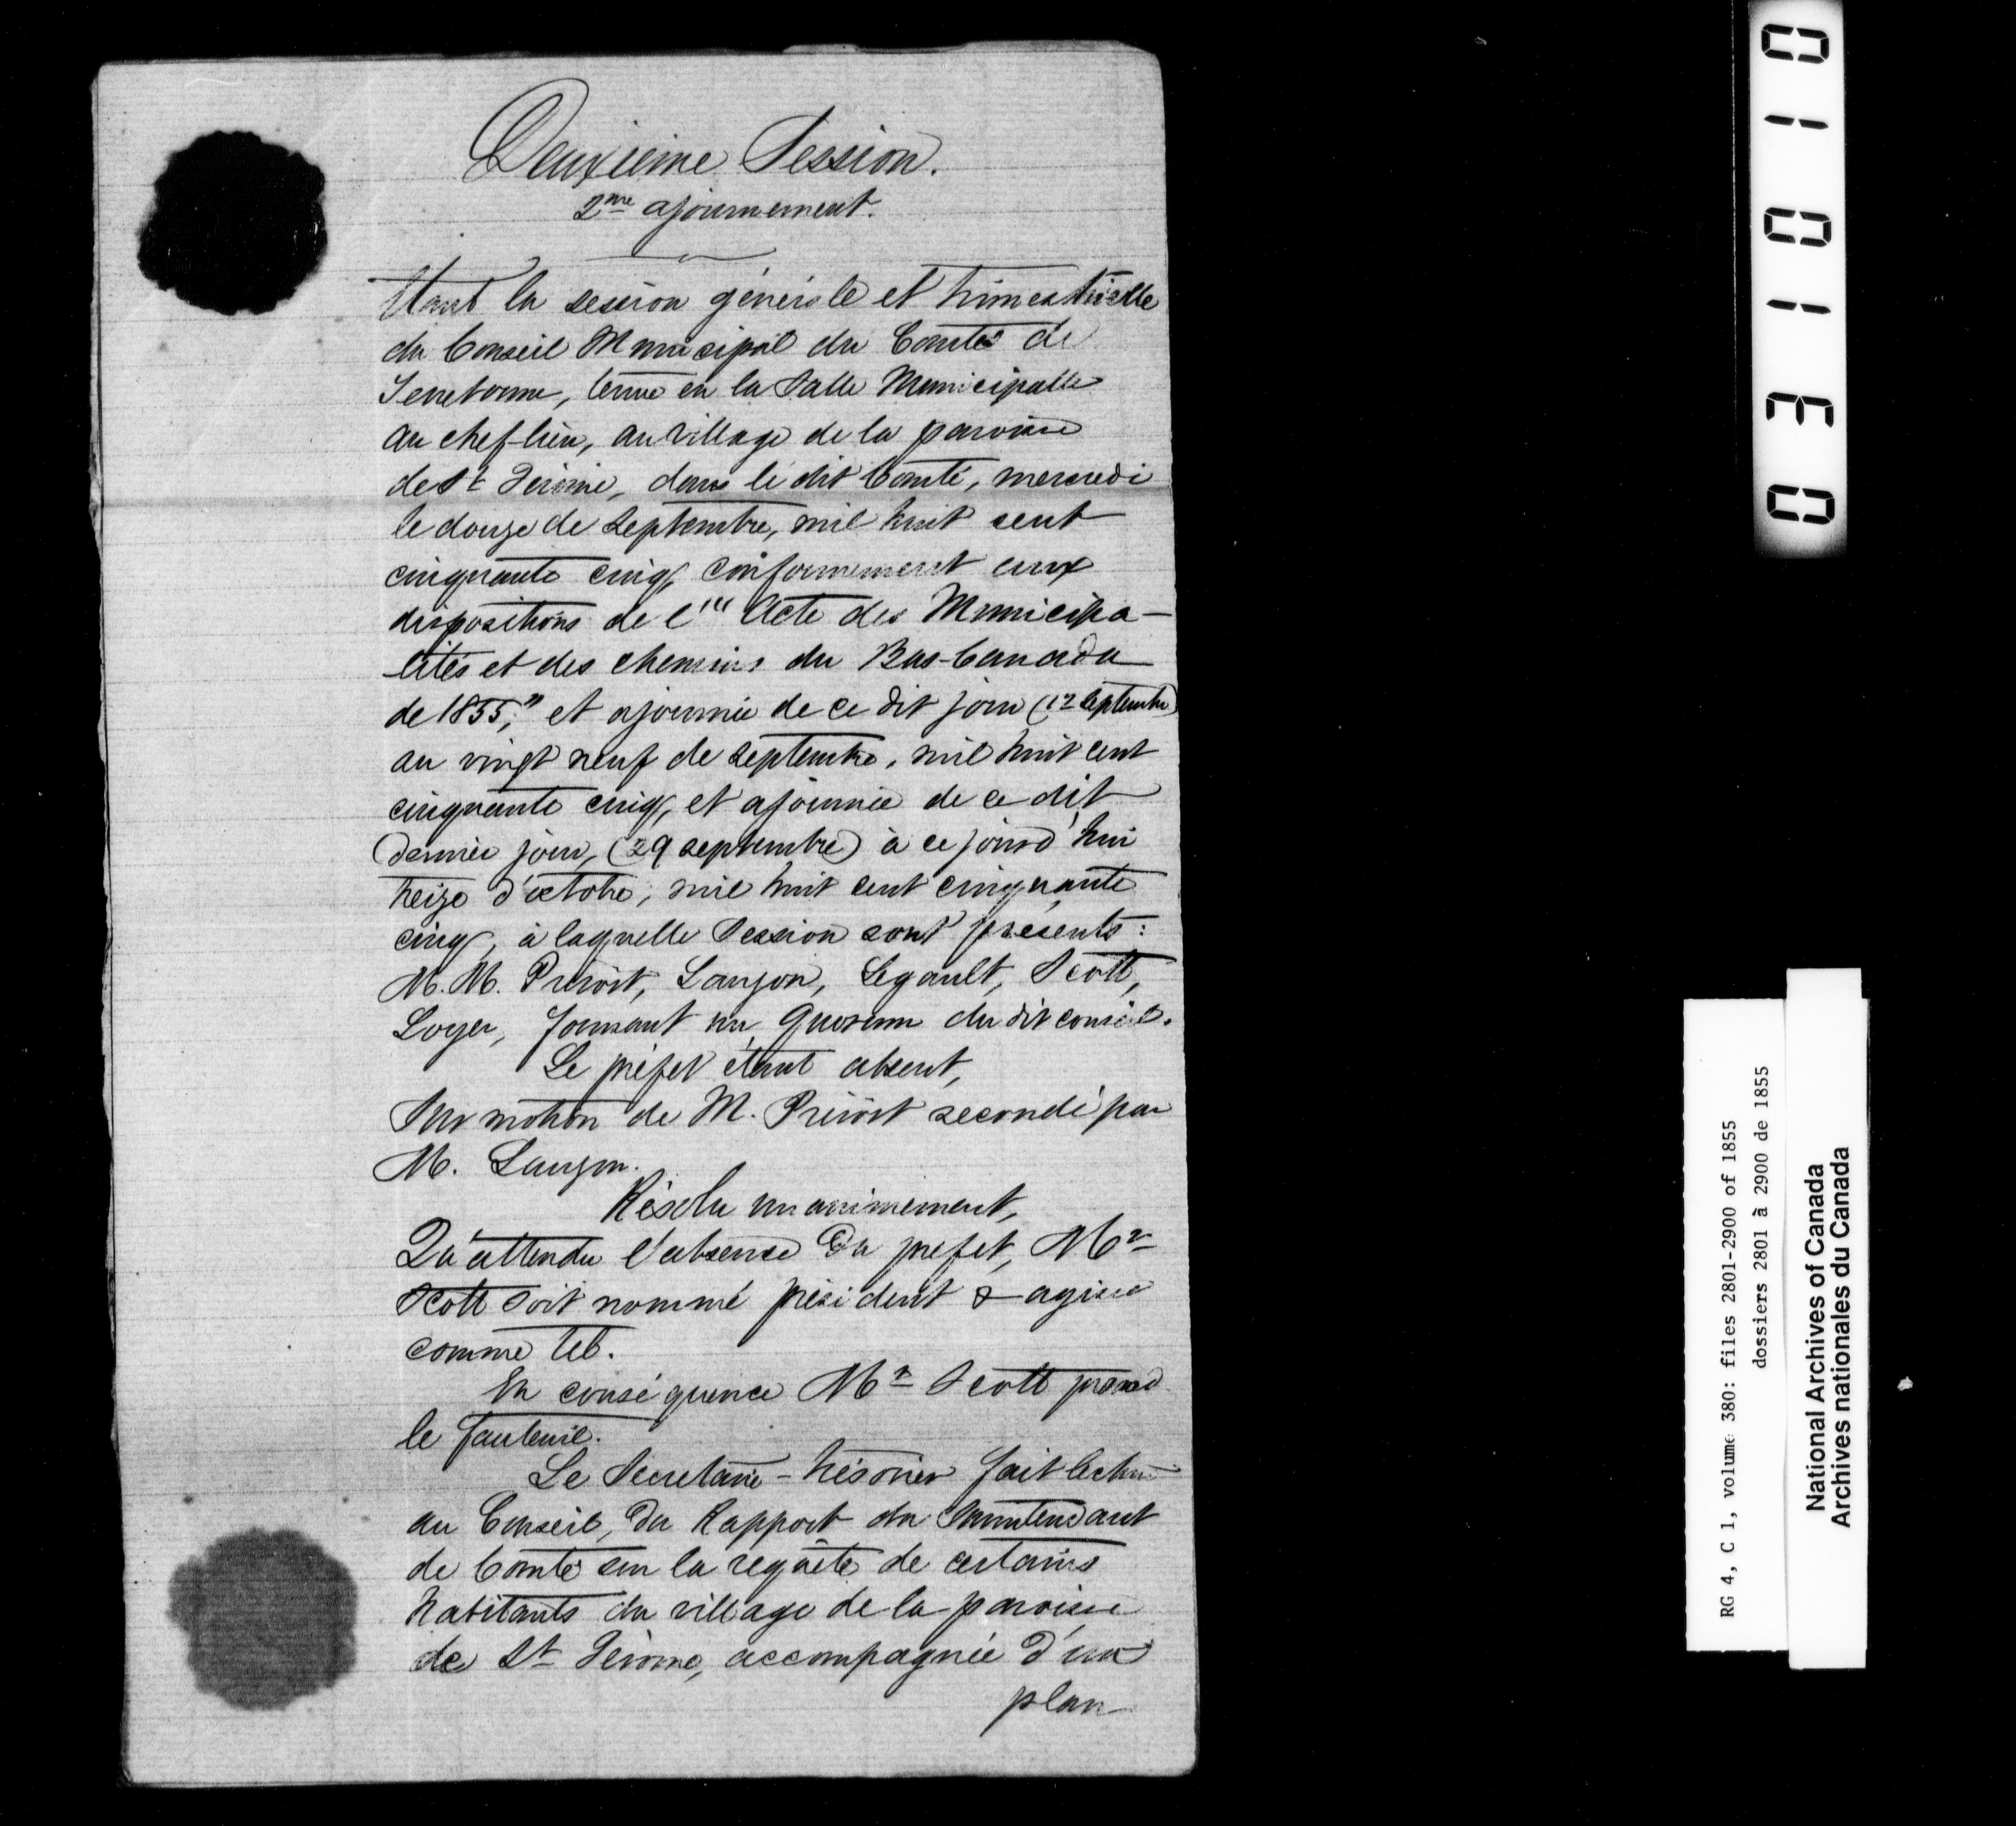 Deuxieme Session.
2me ajournement.
Etant la session générale et trimestrielle
du Conseil Municipal du Comté de
Terrebonne, tenue en la Salle Municipalle
au chef-lieu, au village de la paroisse
de St Jérome, dans le dit Comté, mercredi
le douze de Septembre, mil huit cent
cinquante cinq, conformement aux
dispositions de l'"Acte des Municipa-
lités et des chemins du Bas-Canada
de 1855," et ajournée de ce dit jour (12 Septembre)
au vingt neuf de Septembre, mil huit cent
cinquante cinq, et ajournée de ce dit
dernier jour, (29 septembre) à ce jourd'hui
treize d'octobre, mil huit cent cinquante
cinq, à laquelle Session sont présents:
M.M. Prévost, Lauzon, Legault, Scott,
Loyer, formant un Quorum du dit conseil.
Le préfet étant absent,
Sur motion de M. Prévost secondé par
M. Lauzon.
Résolu unanimement,
Qu'attendu l'absence du prefet, Mr
Scott soit nommé président & agisse
comme tel.
En conséquence Mr Scott prend
le fauteuil.
Le Secretaire-trésorier fait lecture
au Conseil, du Rapport du Surintendant
de Comté sur la requête de certains
habitants du village de la paroisse
de St Jérome, accompagnée d'un
plan
0 1 0 1 3 0
RG 4, C 1, volume 380: files 2801-2900 of 1855
dossiers 2801 à 2900 de 1855
National Archives of Canada
Archives nationales du Canada